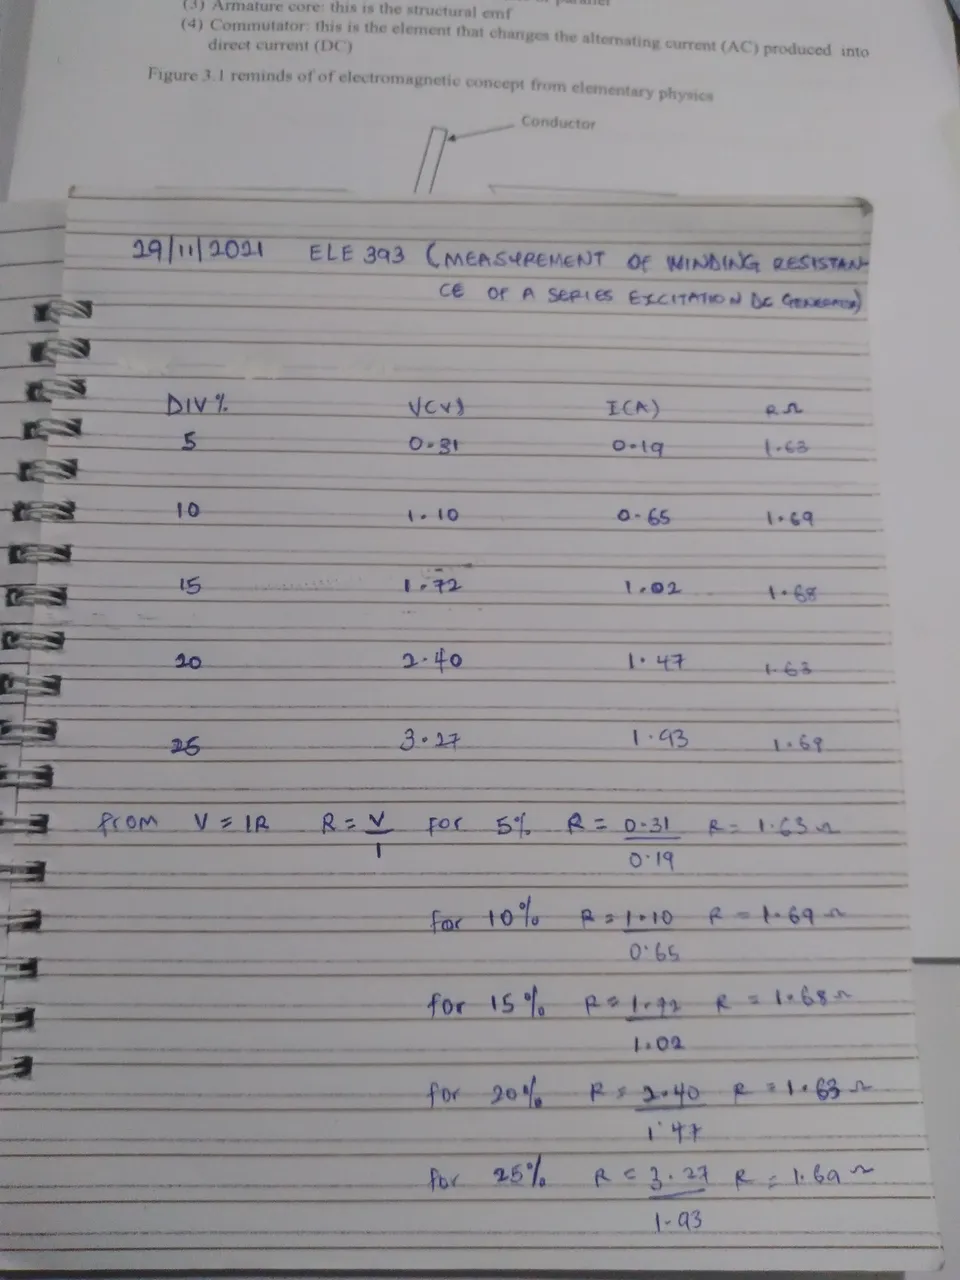 (3) Armature core: this is the structural emf
(4) Commutator: this is the element that changes the alternating current (AC) produced into
direct current (DC)
Figure 3.1 reminds of of electromagnetic concept from elementary physics
Conductor
29/11/2021 ELE 393 (MEASUREMENT OF WINDING RESISTAN-
CE OF A SERIES EXCITATION DC GENERATOR)
DIV % V(V) I(A) R Ω
5 0.31 0.19 1.63
10 1.10 0.65 1.69
15 1.72 1.02 1.68
20 2.40 1.47 1.63
25 3.27 1.93 1.69
from V = IR R = V/I For 5% R = 0.31/0.19 R = 1.63 Ω
for 10% R = 1.10/0.65 R = 1.69 Ω
for 15% R = 1.72/1.02 R = 1.68 Ω
for 20% R = 2.40/1.47 R = 1.63 Ω
for 25% R = 3.27/1.93 R = 1.69 Ω